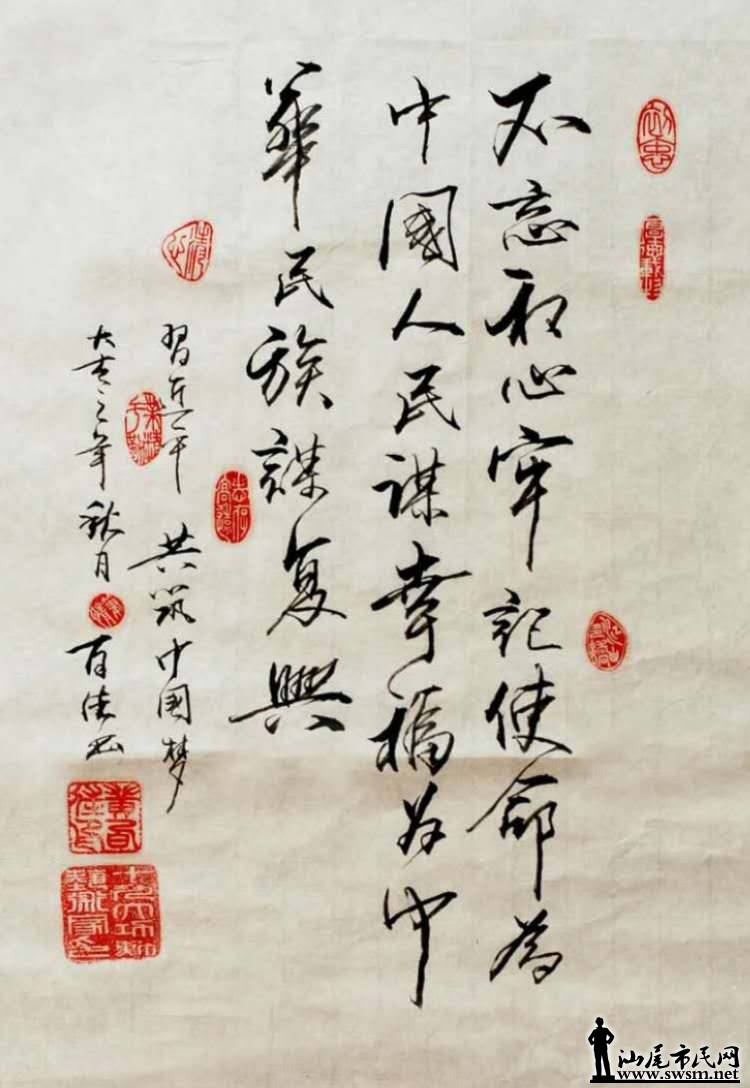 不忘初心牢記使命為
中國人民謀幸福为中
華民族謀复興
習近平 共筑中国梦
秋月 百佳书
汕尾市民网
www.swsm.net